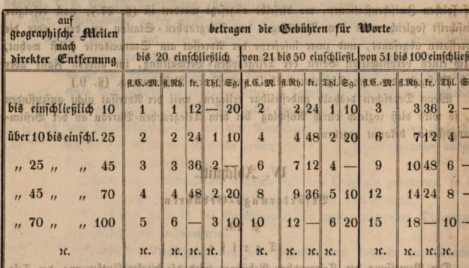 auf
geographische Meilen
nach
direkter Entfernung
betragen die Gebühren für Worte
bis 20 einschließlich von 21 bis 50 einschließl. von 51 bis 100 einschließl.
fl.C.-M. fl.Rh. kr. Thl. Sg. fl.C.-M. fl.Rh. kr. Thl. Sg. fl.C.-M. fl.Rh. kr. Thl. Sg.
bis einschließlich 10 1 1 12 — 20 2 2 24 1 10 3 3 36 2 —
über 10 bis einschl. 25 2 2 24 1 10 4 4 48 2 20 6 7 12 4 —
„ 25 „ „ 45 3 3 36 2 — 6 7 12 4 — 9 10 48 6 —
„ 45 „ „ 70 4 4 48 2 20 8 9 36 5 10 12 14 24 8 —
„ 70 „ „ 100 5 6 — 3 10 10 12 — 6 20 15 18 — 10 —
ꝛc. ꝛc. ꝛc. ꝛc. ꝛc. ꝛc. ꝛc. ꝛc. ꝛc. ꝛc. ꝛc. ꝛc. ꝛc. ꝛc.